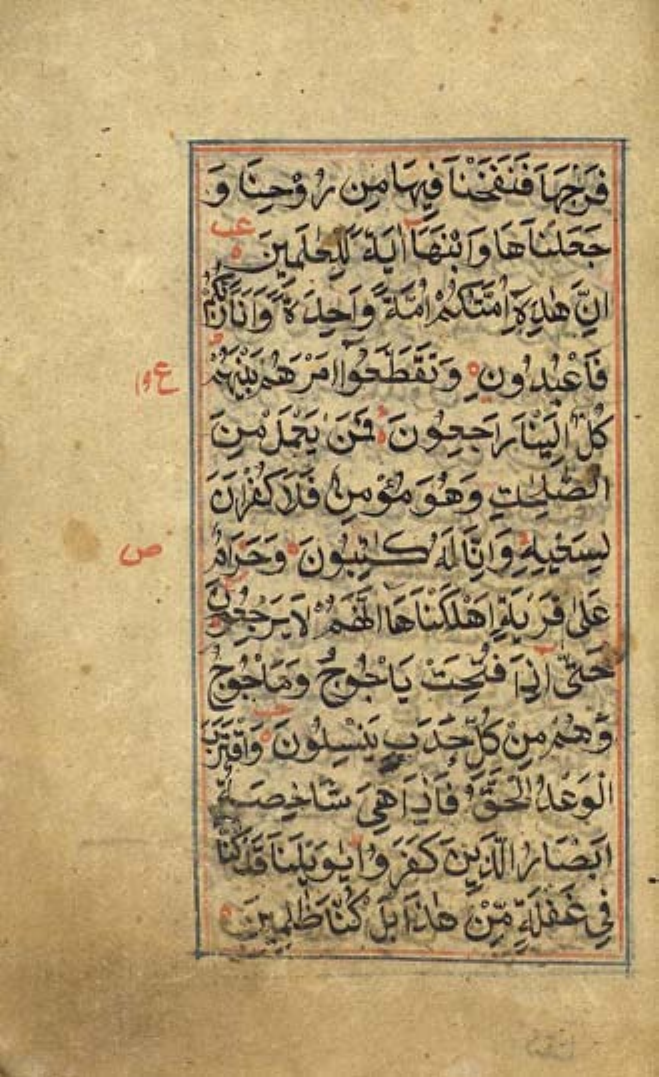 فَرْجَهَا فَنَفَخْنَا فِيهَا مِن رُّوْحِنَا وَ
جَعَلْنَاهَا وَابْنَهَا اٰيَةً لِّلْعٰلَمِينَ
اِنَّ هٰذِهٖ اُمَّتُكُمْ اُمَّةً وَّاحِدَةً وَّاَنَا رَبُّكُمْ
فَاعْبُدُونِ وَتَقَطَّعُوا اَمْرَهُمْ بَيْنَهُمْ
كُلٌّ اِلَيْنَا رَاجِعُونَ فَمَنْ يَعْمَلْ مِنَ
الصّٰلِحٰتِ وَهُوَ مُؤْمِنٌ فَلَا كُفْرَانَ
لِسَعْيِهٖ وَاِنَّا لَهٗ كٰتِبُونَ وَحَرَامٌ
عَلٰى قَرْيَةٍ اَهْلَكْنَاهَا اَنَّهُمْ لَا يَرْجِعُونَ
حَتّٰى اِذَا فُتِحَتْ يَاْجُوجُ وَمَاْجُوجُ
وَهُمْ مِنْ كُلِّ حَدَبٍ يَنْسِلُونَ وَاقْتَرَبَ
الْوَعْدُ الْحَقُّ فَاِذَا هِىَ شَاخِصَةٌ
اَبْصَارُ الَّذِينَ كَفَرُوا يٰوَيْلَنَا قَدْ كُنَّا
فِى غَفْلَةٍ مِّنْ هٰذَا بَلْ كُنَّا ظٰلِمِينَ
ع
ص